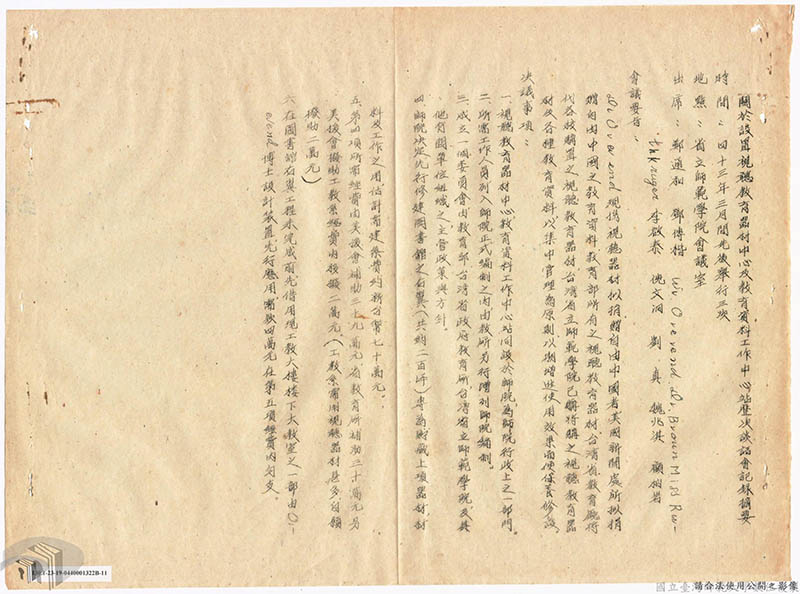 關於設置視聽教育器材中心及教育資料工作中心站歷次談話會記錄摘要
時間：四十三年三月間先後舉行三次
地點：省立師範學院會議室
出席：鄭通和 鄧傳楷 Dr. Brown Miss Ru-
th Kruger 李啟泰 倪文泂 劉真 魏兆淇 顧柏岩
會議要旨：
視為視聽器材似捐贈自由中國者美國新聞處所似捐
贈自由中國之教育資料教育部所有之視聽教育器材台灣省教育廳
代各校購置之視聽教育器材台灣省立師範學院已購將購之視聽教育器
材及各種教育資料以集中管理為原則以期增進使用效果而便保養修護
決議事項：
一、視聽教育器材中心教育資料工作中心站同設於師院為師院行政上之一部門
二、所需工作人員列入師院正式編制之內由教所另行增列師院編制
三、成立一個委員會由教育部台灣省政府教育所台灣省立師範學院及其
他有關單位組織之主管政策與方針
四、師院決定先行修建圖書館之右翼（共約二百坪）專為貯藏上項器材
料及工作之用估計育建築費約新台幣七十萬元
五、第四項所需經費由美援會補助三十九萬元省教育所補助三十萬元另
美援會撥助工教系經費內核撥二萬元（工教系需用視聽器材甚多自願
撥助二萬元）
六、在圖書館右翼工程未完成前先借用現工教大樓樓下大教室之一部由O-
verend博士設計裝置先行應用需款四萬元在第五項經費內勻支
1322B-11
請合法使用公開之影像